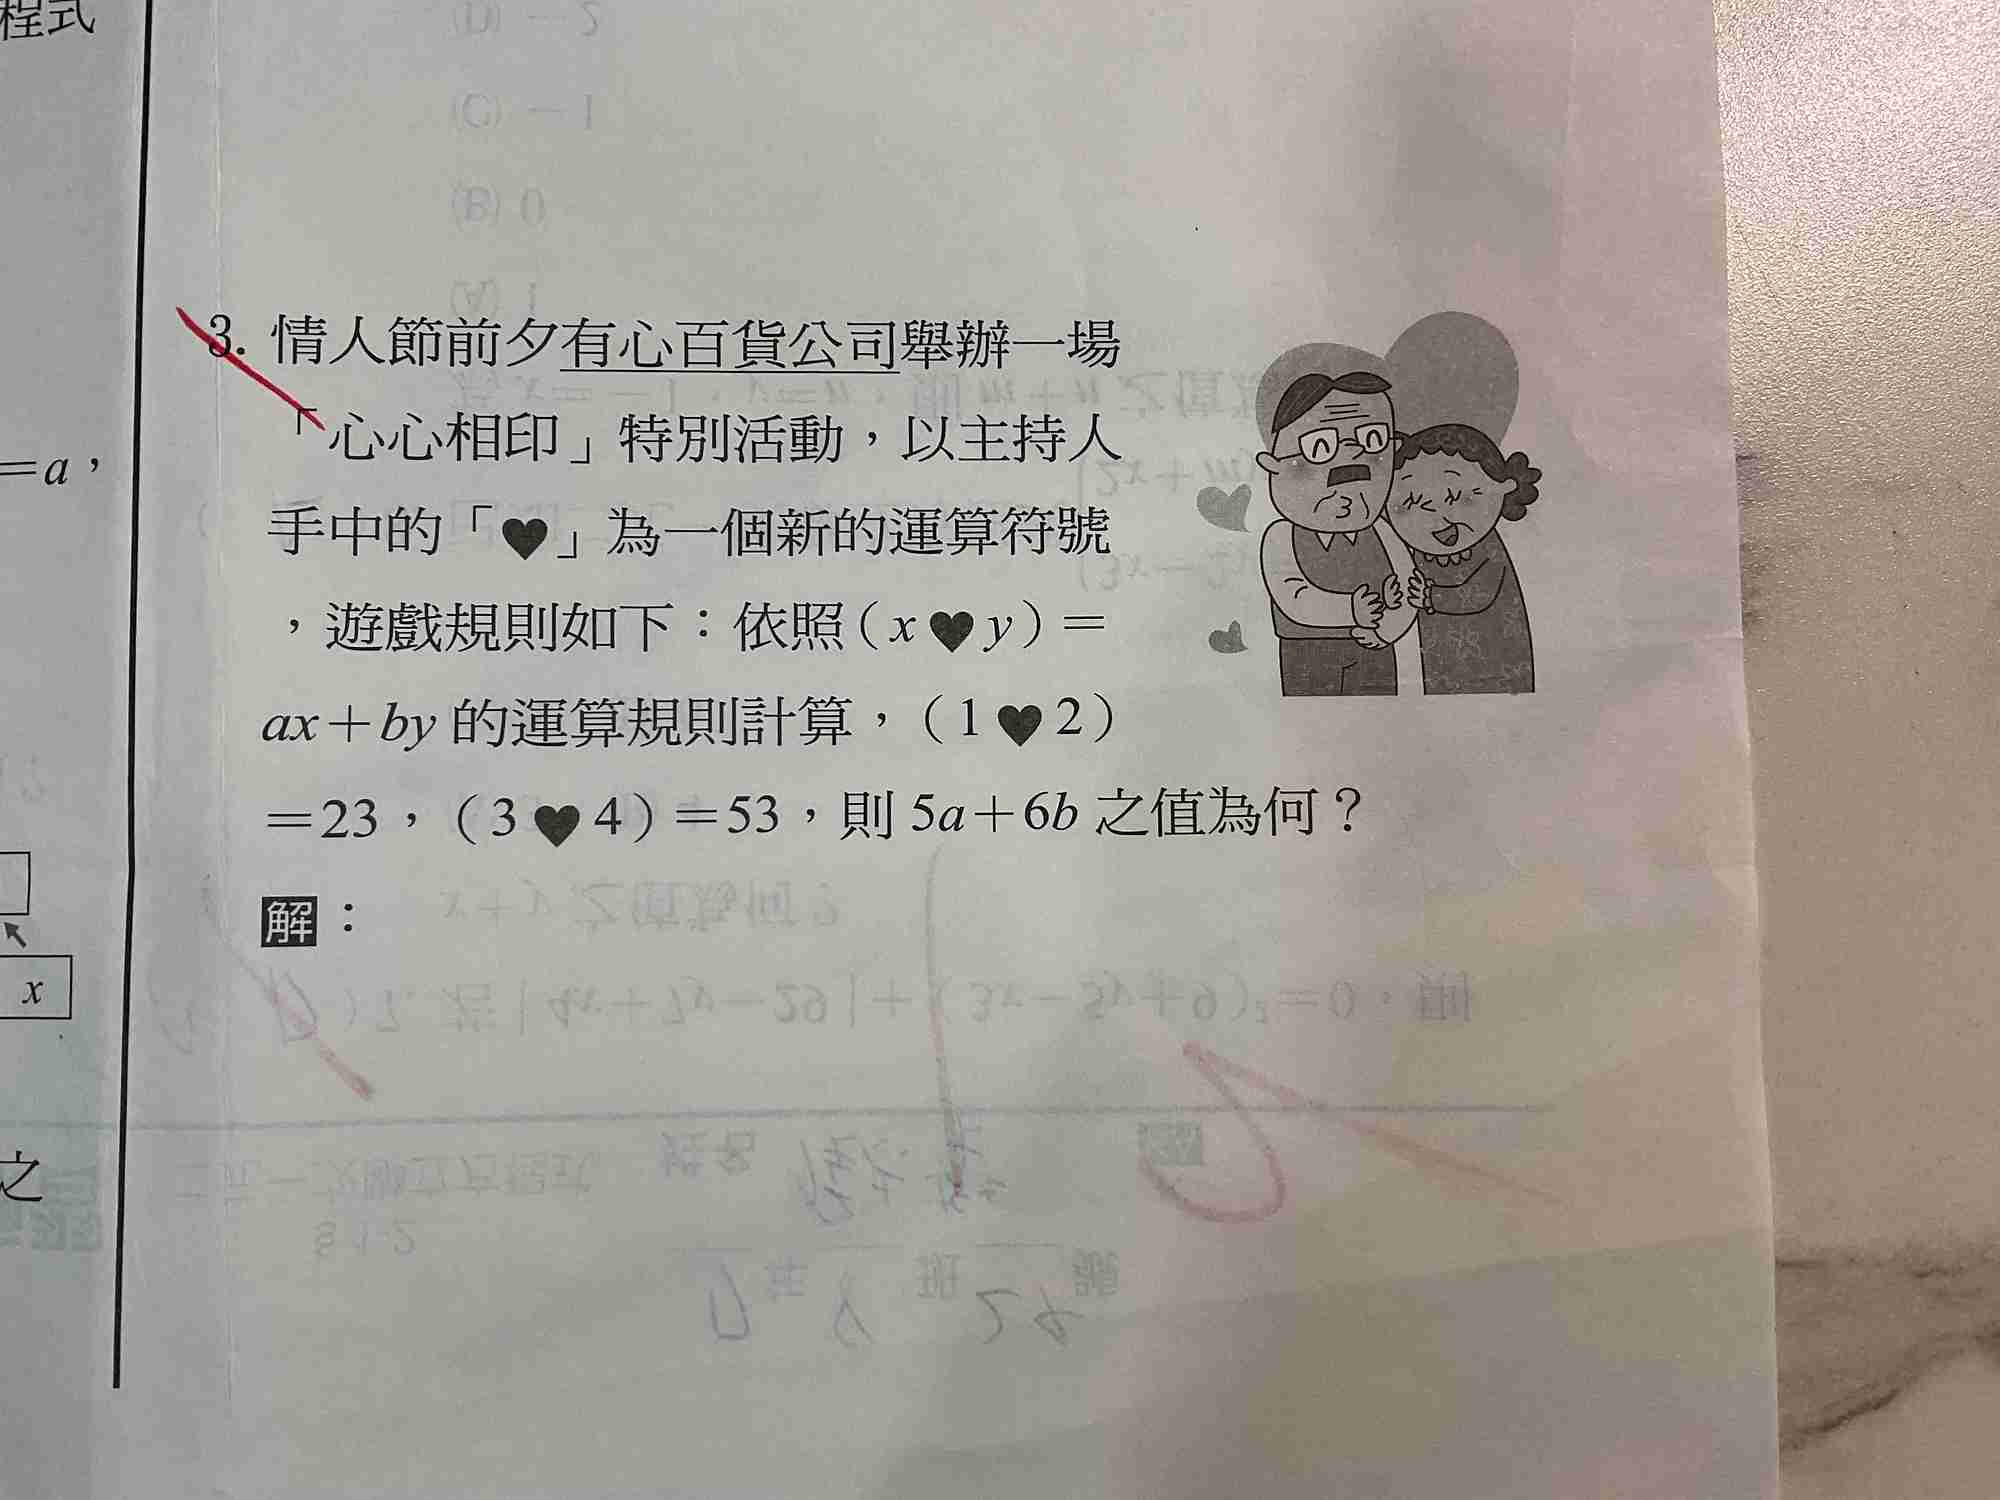 程式
=a，
x
之
3. 情人節前夕有心百貨公司舉辦一場
「心心相印」特別活動，以主持人
手中的「♥」為一個新的運算符號
，遊戲規則如下：依照（x♥y）=
ax+by 的運算規則計算，（1♥2）
=23，（3♥4）=53，則 5a+6b 之值為何？
解：